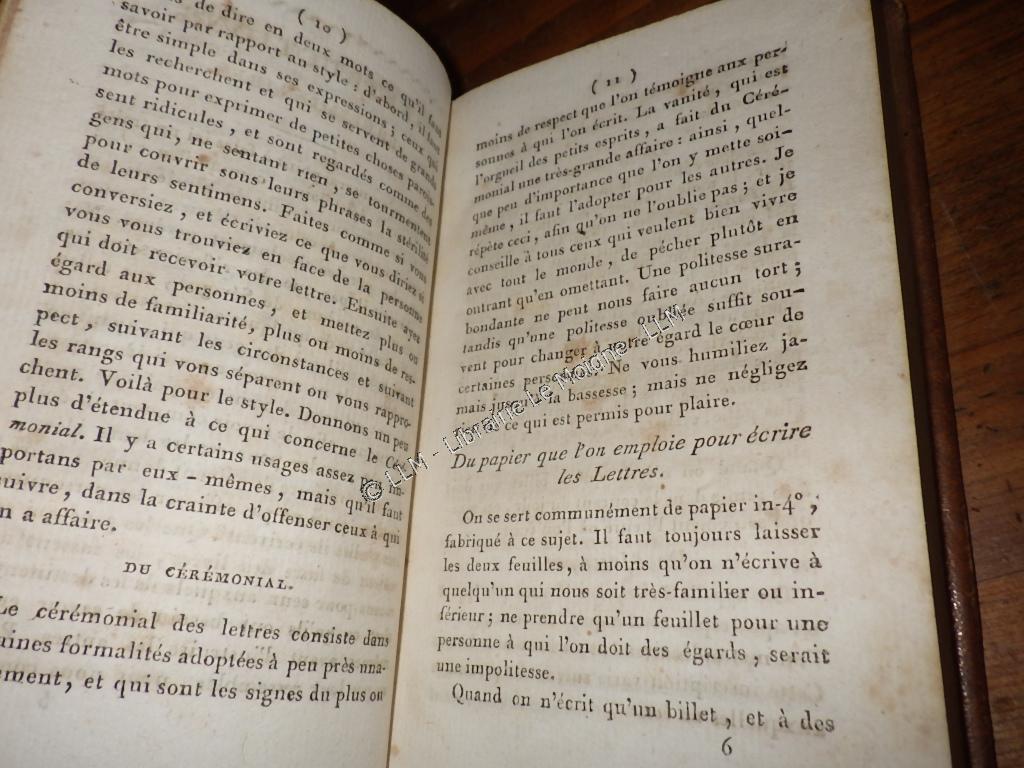 ( 10 )
de dire en deux mots ce qu'il faut
savoir par rapport au style : d'abord, il faut
être simple dans ses expressions ; ceux qui
les recherchent et qui se servent de grands
mots pour exprimer de petites choses parois-
sent ridicules, et sont regardés comme des
gens qui, ne sentant rien, se tourmentent
pour couvrir sous leurs phrases la stérilité
de leurs sentimens. Faites comme si vous
conversiez, et écriviez ce que vous diriez si
vous vous trouviez en face de la personne
qui doit recevoir votre lettre. Ensuite ayez
égard aux personnes, et mettez plus ou
moins de familiarité, plus ou moins de res-
pect, suivant les circonstances et suivant
les rangs qui vous séparent ou vous rappro-
chent. Voilà pour le style. Donnons un peu
plus d'étendue à ce qui concerne le Céré-
monial. Il y a certains usages assez peu im-
portans par eux-mêmes, mais qu'il faut
suivre, dans la crainte d'offenser ceux à qui
n a affaire.
DU CÉRÉMONIAL.
Le cérémonial des lettres consiste dans
aines formalités adoptées à peu près una-
ement, et qui sont les signes du plus ou
( 11 )
moins de respect que l'on témoigne aux per-
sonnes à qui l'on écrit. La vanité, qui est
l'orgueil des petits esprits, a fait du Céré-
monial une très-grande affaire : ainsi, quel-
que peu d'importance que l'on y mette soi-
même, il faut l'adopter pour les autres. Je
répète ceci, afin qu'on ne l'oublie pas ; et je
conseille à tous ceux qui veulent bien vivre
avec tout le monde, de pécher plutôt en
outrant qu'en omettant. Une politesse sura-
bondante ne peut nous faire aucun tort ;
tandis qu'une politesse oubliée suffit sou-
vent pour changer à notre égard le cœur de
certaines personnes. Ne vous humiliez ja-
mais jusqu'à la bassesse ; mais ne négligez
ce qui est permis pour plaire.
Du papier que l'on emploie pour écrire
les Lettres.
On se sert communément de papier in-4° ;
fabriqué à ce sujet. Il faut toujours laisser
les deux feuilles, à moins qu'on n'écrive à
quelqu'un qui nous soit très-familier ou in-
férieur ; ne prendre qu'un feuillet pour une
personne à qui l'on doit des égards, serait
une impolitesse.
Quand on n'écrit qu'un billet, et à des
6
© LLM - Librairie Le Moine - LLM